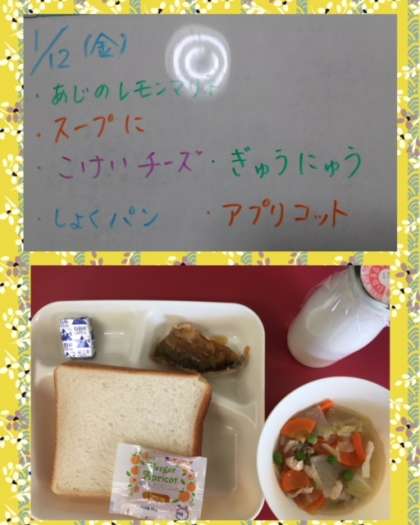 1/12 (金)
・あじのレモンマリネ
・スープに
・こけいチーズ ・ぎゅうにゅう
・しょくパン ・アプリコット
Apricot